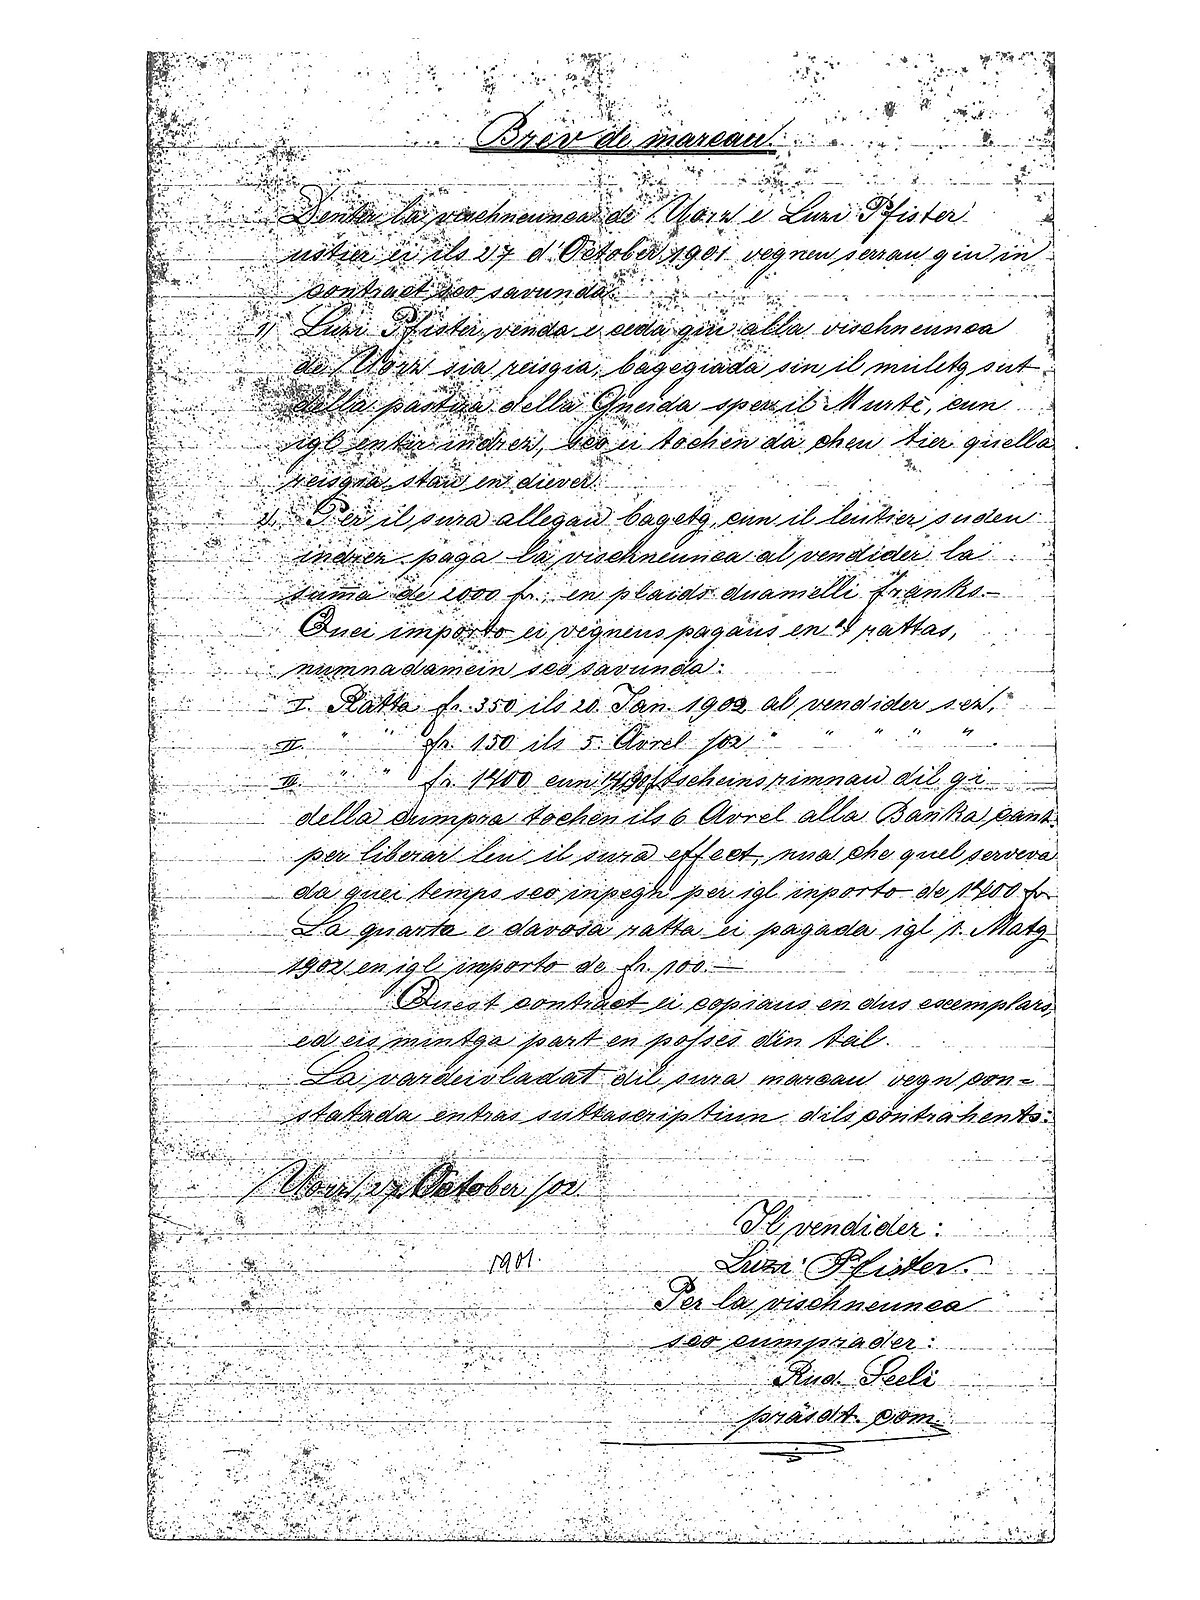 Brev de marcau.
Denter la vischneunca de Uorz e Luzi Pfister
ustier ei ils 27 d' October 1901 vegneu serrau giu in
contract sco savunda:
1) Luzi Pfister venda e ceda giu alla vischneunca
de Uorz sia reisgia, bagegiada sin il muletg sut
della pastira della Gneida sper il Murtè, cun
igl entir indrez, sco ei tochen da cheu tier quella
reisgia stau en diever.
2) Per il sura allegau bagetg, cun il leutier suden
indrez paga la vischneunca al vendider la
summa de 2000 fr., en plaids duamelli franks.–
Quei importo ei vegneus pagaus en 4 rattas,
numnadamein sco savunda:
I. Ratta fr. 350 ils 20. Jan. 1902 al vendider sez,
II. " " fr. 150 ils 5. Avrel /02 " " " " .
III. " " fr. 1400 cun tscheins rimnau dil gi
della cumpra tochen ils 6 Avrel alla Banka cant.
per liberar leu il sura effect, nua che quel serveva
da quei temps sco inpegn per igl inporto de 1400 fr.
La quarta e davosa ratta ei pagada igl 1. Matg
1902 en igl importo de fr. 100.—
Quest contract ei copiaus en dus exemplars,
ed eis mintga part en posses din tal.
La vardeivladat dil sura marcau vegn con=
statada entras suttascriptiun dils contrahents:
Uorz, 27. October /02.
1901.
Il vendider:
Luzi Pfister.
Per la vischneunca
sco cumprader:
Rud. Seeli
präsdt. com.